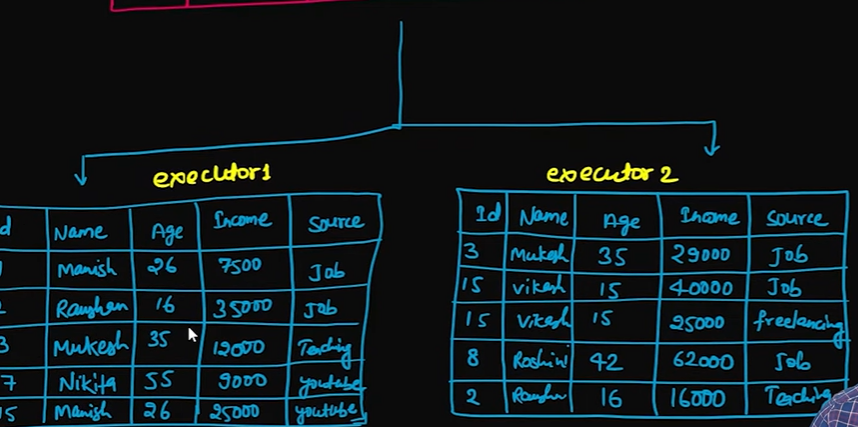 executor1
executor 2
d Name Age Income Source
1 Manish 26 7500 Job
2 Raushan 16 35000 Job
3 Mukesh 35 12000 Teaching
7 Nikita 55 9000 youtube
15 Manish 26 25000 youtube
Id Name Age Income Source
3 Mukesh 35 29000 Job
15 vikash 15 40000 Job
15 Vikash 15 25000 freelancing
8 Roshini 42 62000 Job
2 Raushan 16 16000 Teaching